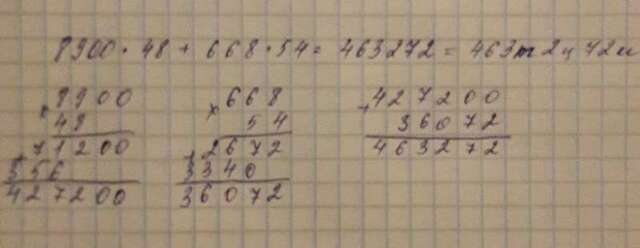 8900 · 48 + 668 · 54 = 463272 = 463т 2ц 72к
× 8900 × 668 + 427200
48 54 36072
+ 71200 + 2672 463272
356 3340
427200 36072